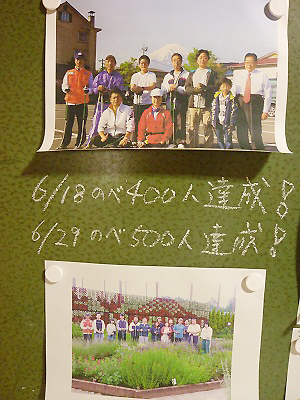 6/18のべ400人達成!
6/29のべ500人達成!